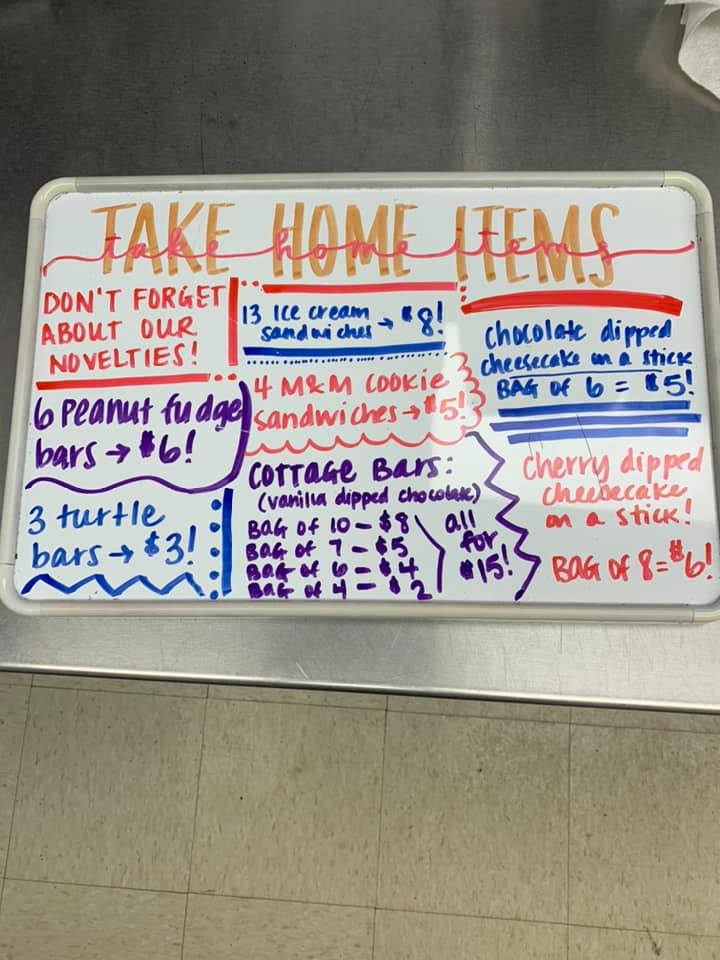 TAKE HOME ITEMS
take home items
DON'T FORGET
ABOUT OUR
NOVELTIES!
6 Peanut fudge
bars → $6!
3 turtle
bars → $3!
13 Ice cream
sandwiches → $8!
4 M&M COOKIE
sandwiches → $5!
COTTAGE BARS:
(vanilla dipped chocolate)
BAG OF 10 - $8
BAG OF 7 - $5
BAG OF 6 - $4
BAG OF 4 - $2
all
for
$15!
chocolate dipped
cheesecake on a stick
BAG OF 6 = $5!
Cherry dipped
cheesecake
on a stick!
BAG OF 8 = $6!